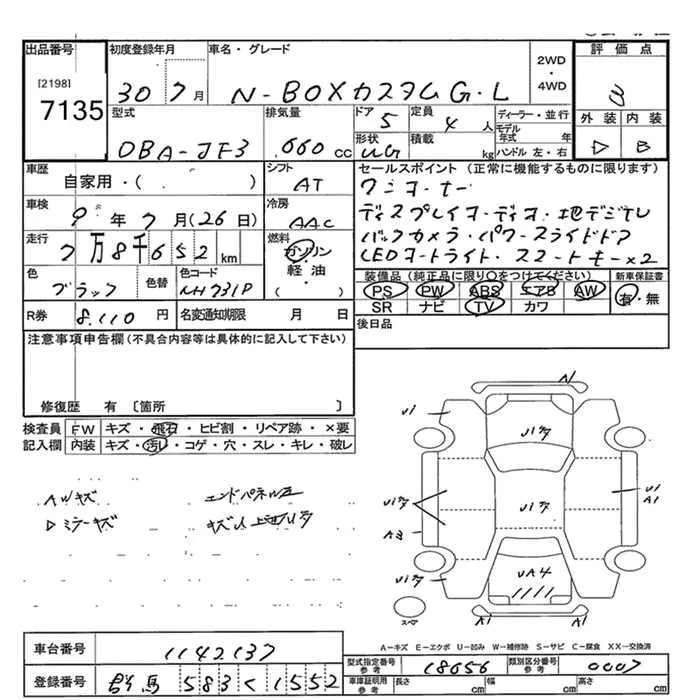 出品番号 初度登録年月 車名・グレード 2WD・4WD 評価点
[2198]
7135
30 7月 N-BOXカスタム G・L 3
型式 排気量 ドア 定員 ディーラー・並行 外装 内装
DBA-JF3 660 cc 5 4人 モデル年式 年
形状 積載 kg ハンドル 左・右 B
車歴 シフト セールスポイント(正常に機能するものに限ります)
自家用・( ) AT ワンオーナー
車検 冷房 ディスプレイオーディオ・地デジTV
9年7月(26日) AAC バックカメラ・パワースライドドア
走行 燃料 LEDオートライト・スマートキー×2
7万8千652km ガソリン・軽油( )
色 色替 色コード 装備品(純正品に限り○をつけてください) 新車保証書
ブラック NH731P PS PW ABS エアB AW 有・無
SR ナビ TV カワ
R券 8,110円 名変通知期限 月 日 後日品
注意事項申告欄(不具合内容等は具体的に記入して下さい)
修復歴 有 〔箇所 〕
検査員記入欄 FW キズ・飛石・ヒビ割・リペア跡・×要
内装 キズ・汚レ・コゲ・穴・スレ・キレ・破レ
AWキズ エンドパネル
ミラーキズ
N
A3
A1
UA4
スペア A1 A1
A-キズ E-エクボ U-凹み W-補修跡 S-サビ C-腐食 XX-交換済
車台番号 1142137
型式指定番号参考 18656 類別区分番号参考 0007
登録番号 群馬 583 く 1552
車庫証明用参考 長さ cm 幅 cm 高さ cm